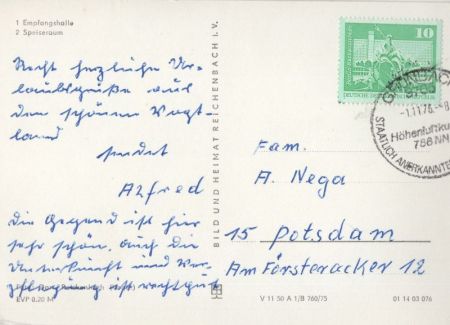 1 Empfangshalle
2 Speiseraum
Recht herzliche Ur-
laubsgrüße aus
dem schönen Vogt-
land
sendet
Alfred
Die Gegend ist hier
sehr schön, auch die
Unterkunft und Ver-
pflegung ist recht gut
EVP 0,20 M
BILD UND HEIMAT REICHENBACH I. V.
10
-1.11.76.-8
Höhenluftku
788 NN
STAATLICH ANERKANNTE
Fam.
A. Nega
15 Potsdam
Am Försteracker 12
V 11 50 A 1/B 760/75
01 14 03 076